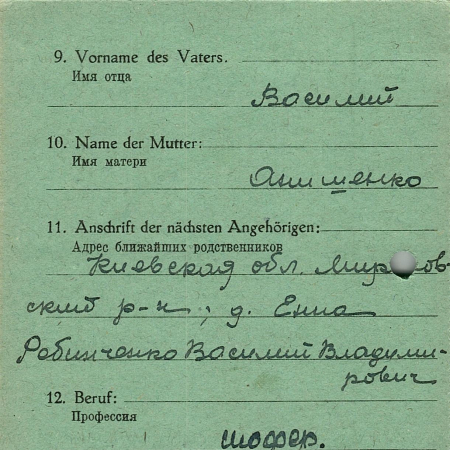 9. Vorname des Vaters.
Имя отца
Василий
10. Name der Mutter:
Имя матери
Анищенко
11. Anschrift der nächsten Angehörigen:
Адрес ближайших родственников
Киевская обл. Мир
ский р-н, д.
Василий Владими-
рович
12. Beruf:
Профессия
шофер.